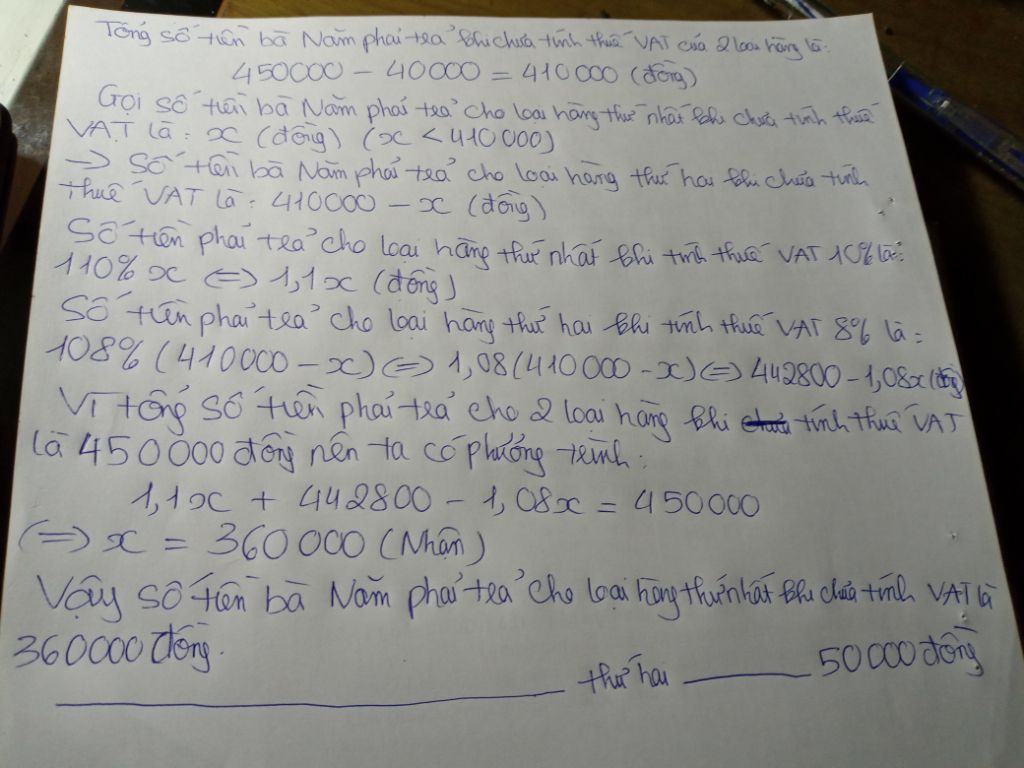 Tổng số tiền bà Năm phải trả khi chưa tính thuế VAT của 2 loại hàng là:
450000 - 40000 = 410000 (đồng)
Gọi số tiền bà Năm phải trả cho loại hàng thứ nhất khi chưa tính thuế
VAT là: x (đồng) (x < 410000)
→ Số tiền bà Năm phải trả cho loại hàng thứ hai khi chưa tính
thuế VAT là: 410000 - x (đồng)
Số tiền phải trả cho loại hàng thứ nhất khi tính thuế VAT 10% là:
110% x <=> 1,1x (đồng)
Số tiền phải trả cho loại hàng thứ hai khi tính thuế VAT 8% là:
108% (410000 - x) <=> 1,08 (410000 - x) <=> 442800 - 1,08x (đồng)
Vì tổng số tiền phải trả cho 2 loại hàng khi tính thuế VAT
là 450000 đồng nên ta có phương trình:
1,1x + 442800 - 1,08x = 450000
<=> x = 360000 (Nhận)
Vậy số tiền bà Năm phải trả cho loại hàng thứ nhất khi chưa tính VAT là
360000 đồng.
thứ hai 50000 đồng